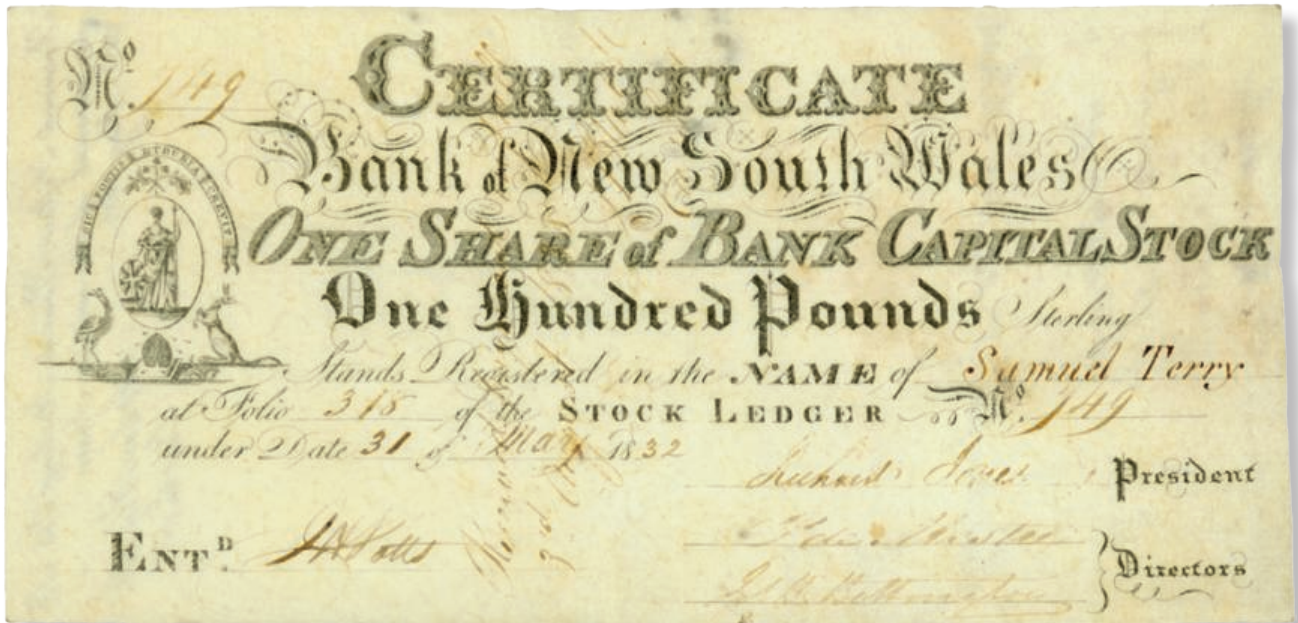 Nº. 149
CERTIFICATE
Bank of New South Wales
SIC FORTIS ETRURIA CREVIT
ONE SHARE of BANK CAPITAL STOCK
One Hundred Pounds Sterling
Stands Registered in the NAME of Samuel Terry
at Folio 318 of the STOCK LEDGER Nº. 149
under Date 31 of May 1832
Richard Jones President
ENTD. Potts
Bettington
Directors